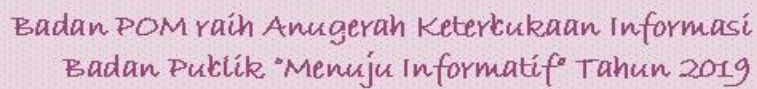 Badan POM raih Anugerah Keterbukaan Informasi
Badan Publik "Menuju Informatif" Tahun 2019